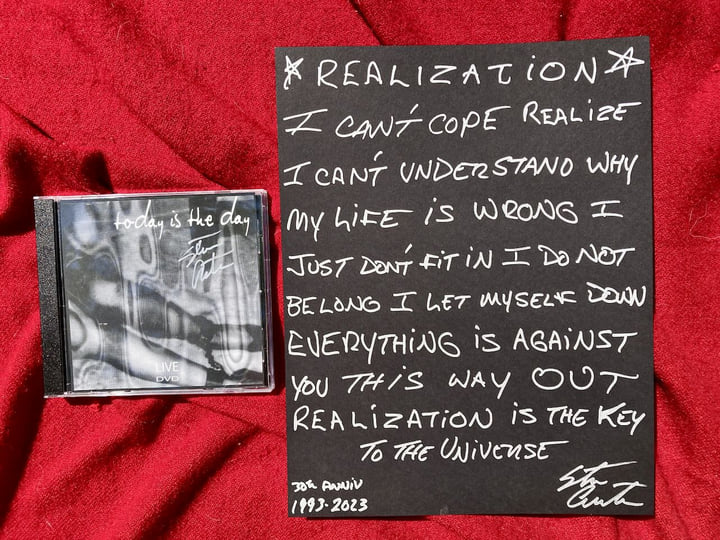 today is the day
LIVE
DVD
REALIZATION
I CAN'T COPE REALIZE
I CAN'T UNDERSTAND WHY
MY LIFE IS WRONG I
JUST DON'T FIT IN I DO NOT
BELONG I LET MYSELF DOWN
EVERYTHING IS AGAINST
YOU THIS WAY OUT
REALIZATION IS THE KEY
TO THE UNIVERSE
30th ANNIV
1993-2023